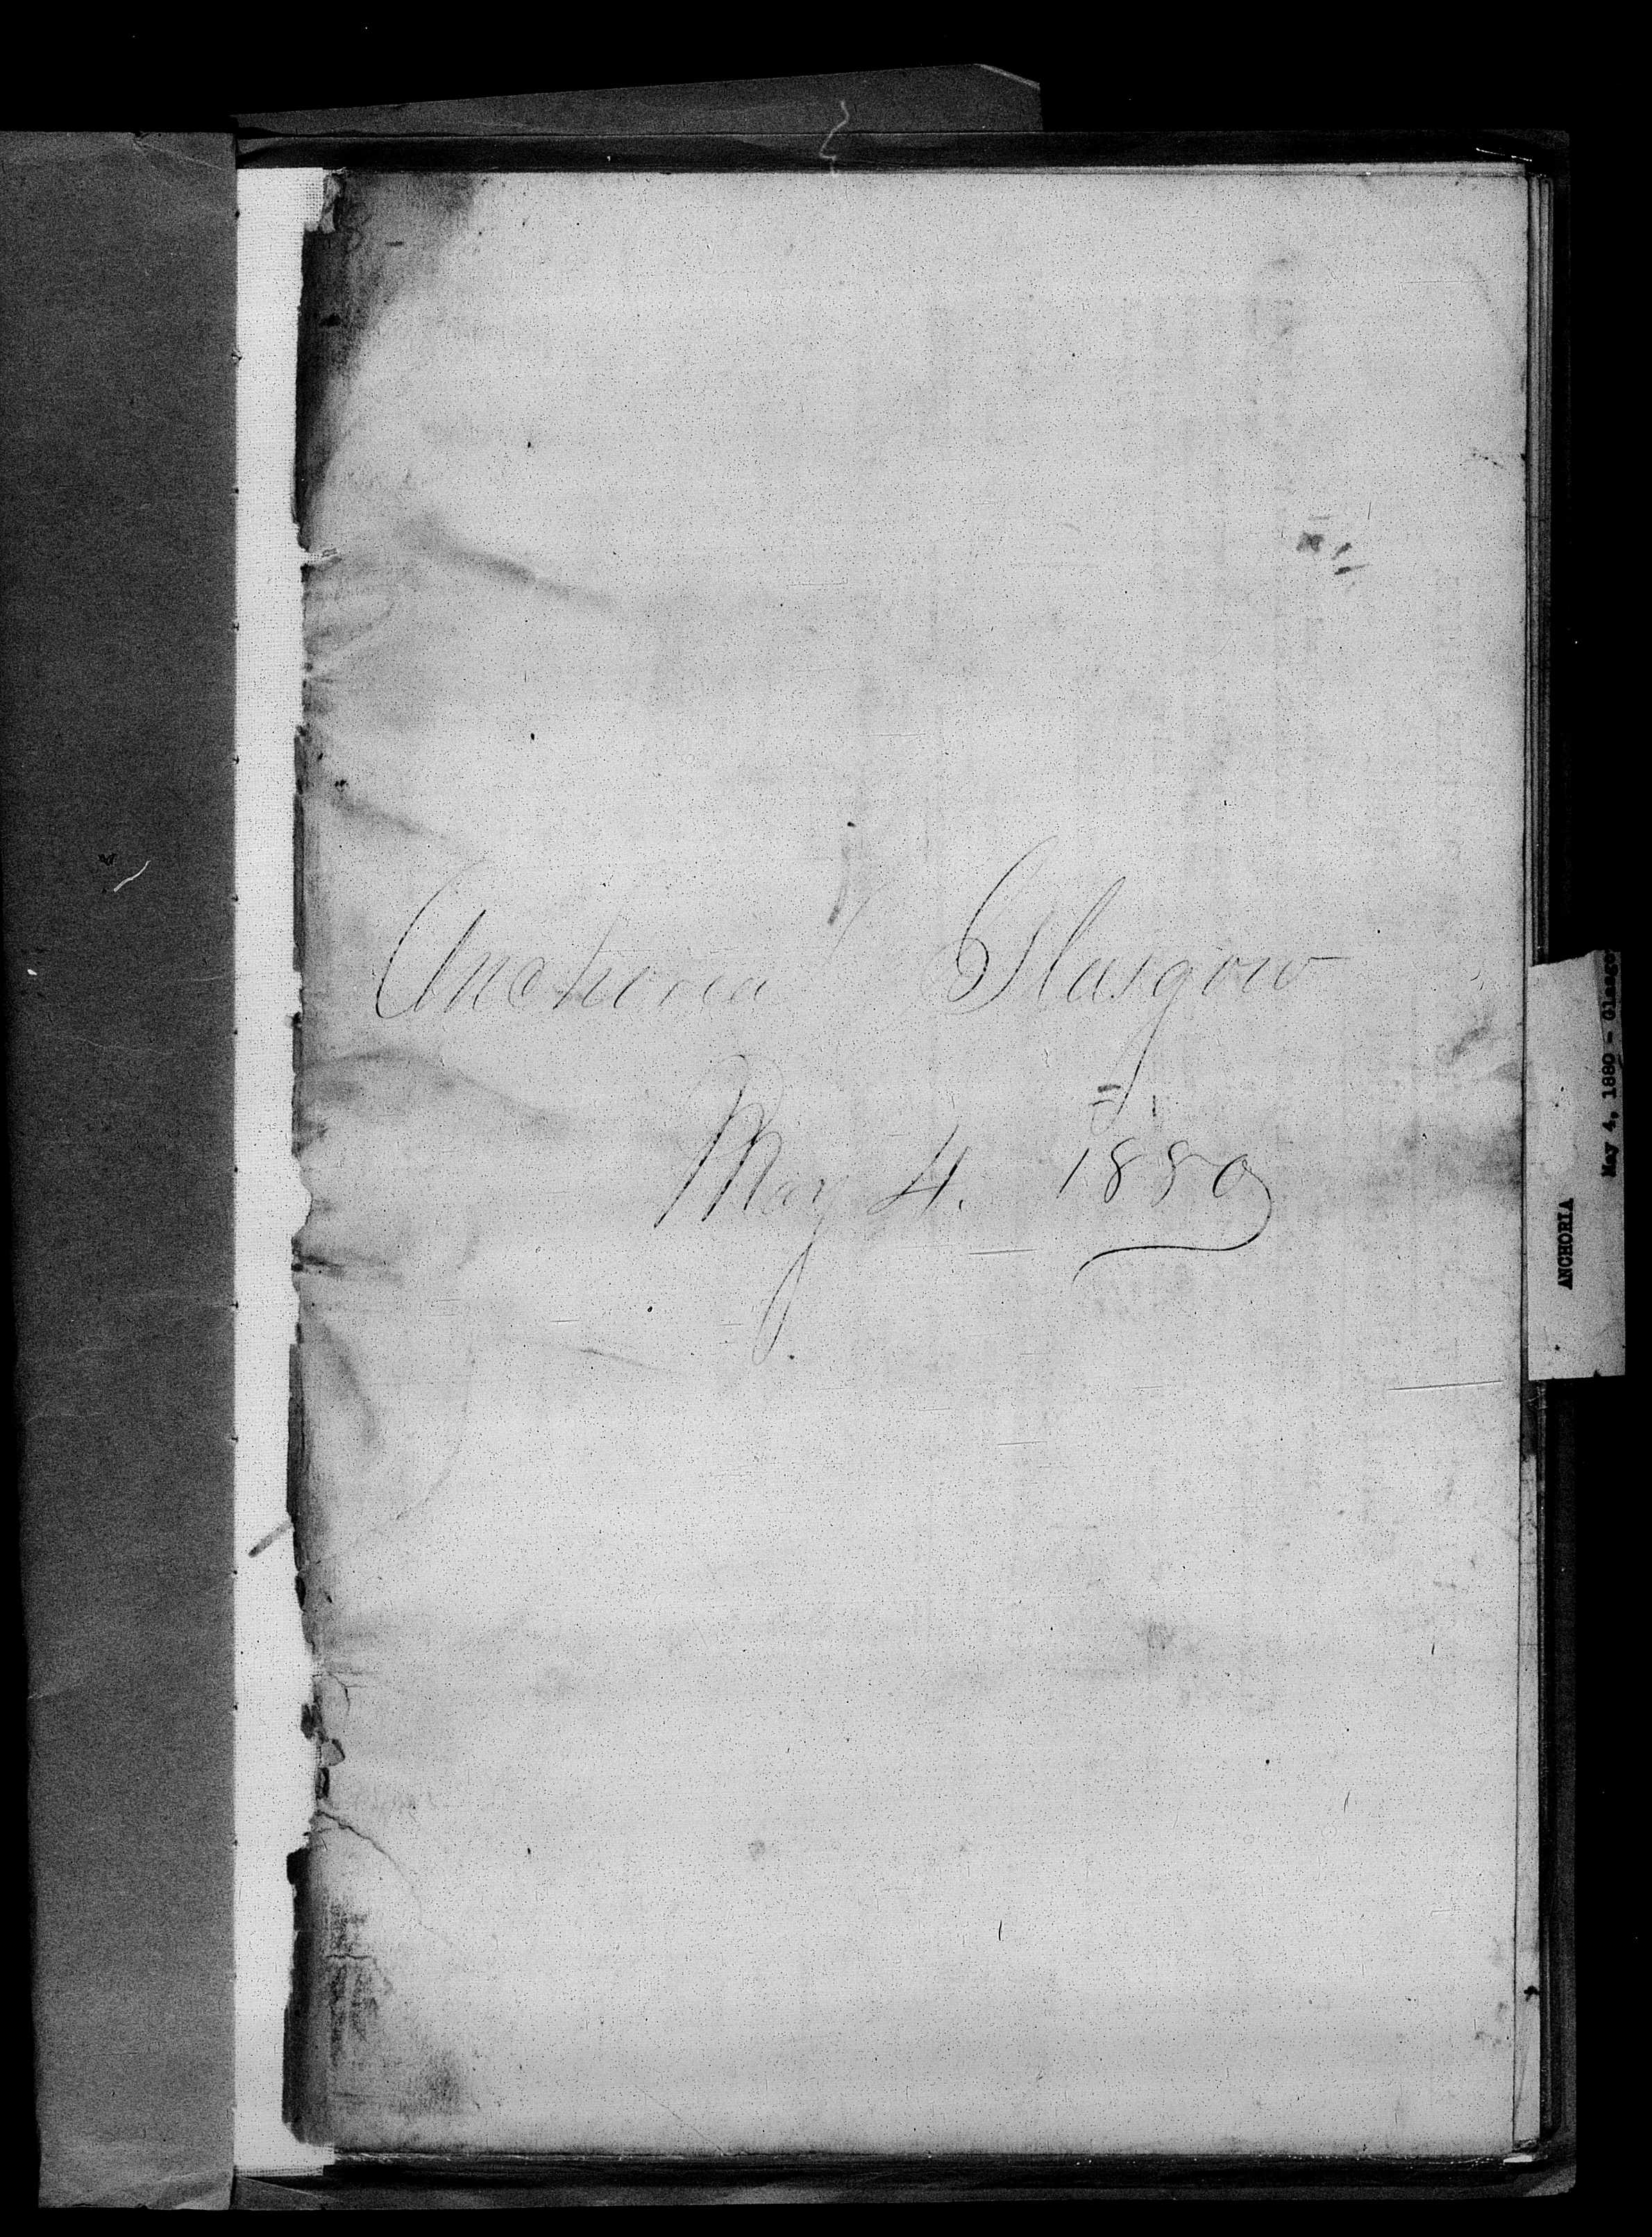 Anchoria Glasgow
May 4. 1880
ANCHORIA
May 4, 1880 - Glasgow